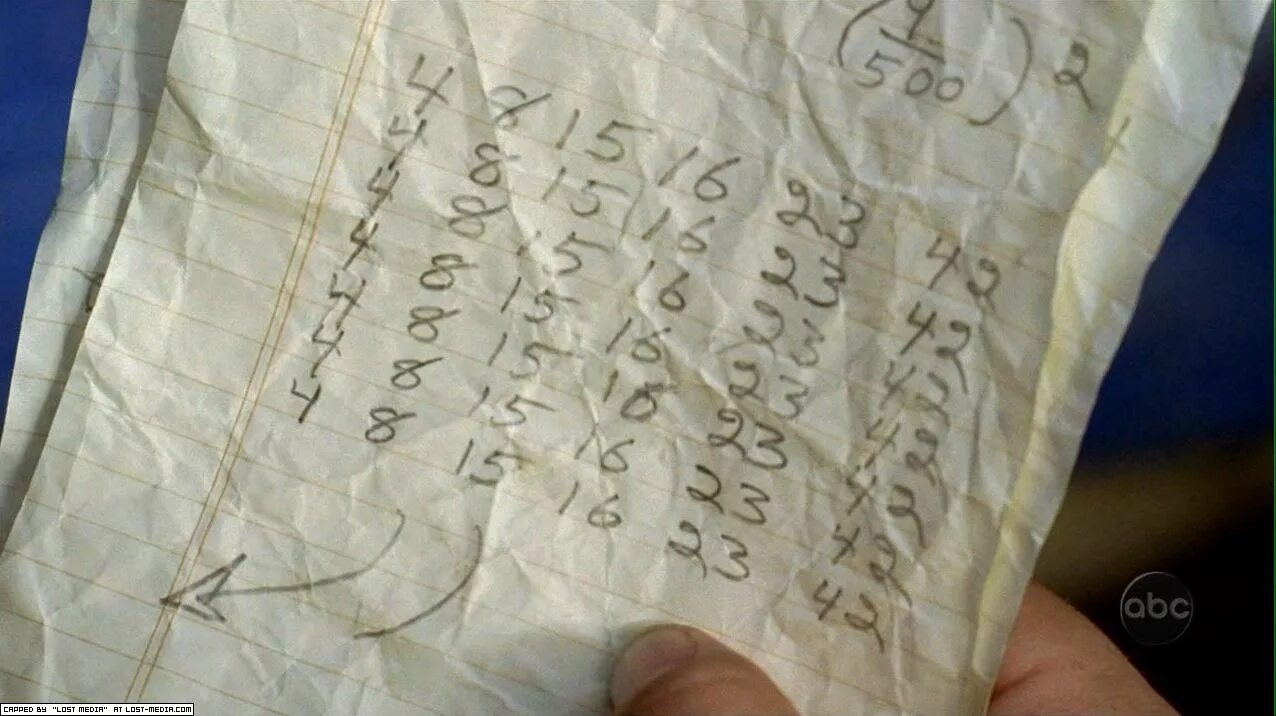 (9/500) 2
4 8 15 16 23 42
4 8 15 16 23 42
4 8 15 16 23 42
4 8 15 16 23 42
4 8 15 16 23 42
4 8 15 16 23 42
4 8 15 16 23 42
abc
CAPPED BY "LOST MEDIA" AT LOST-MEDIA.COM